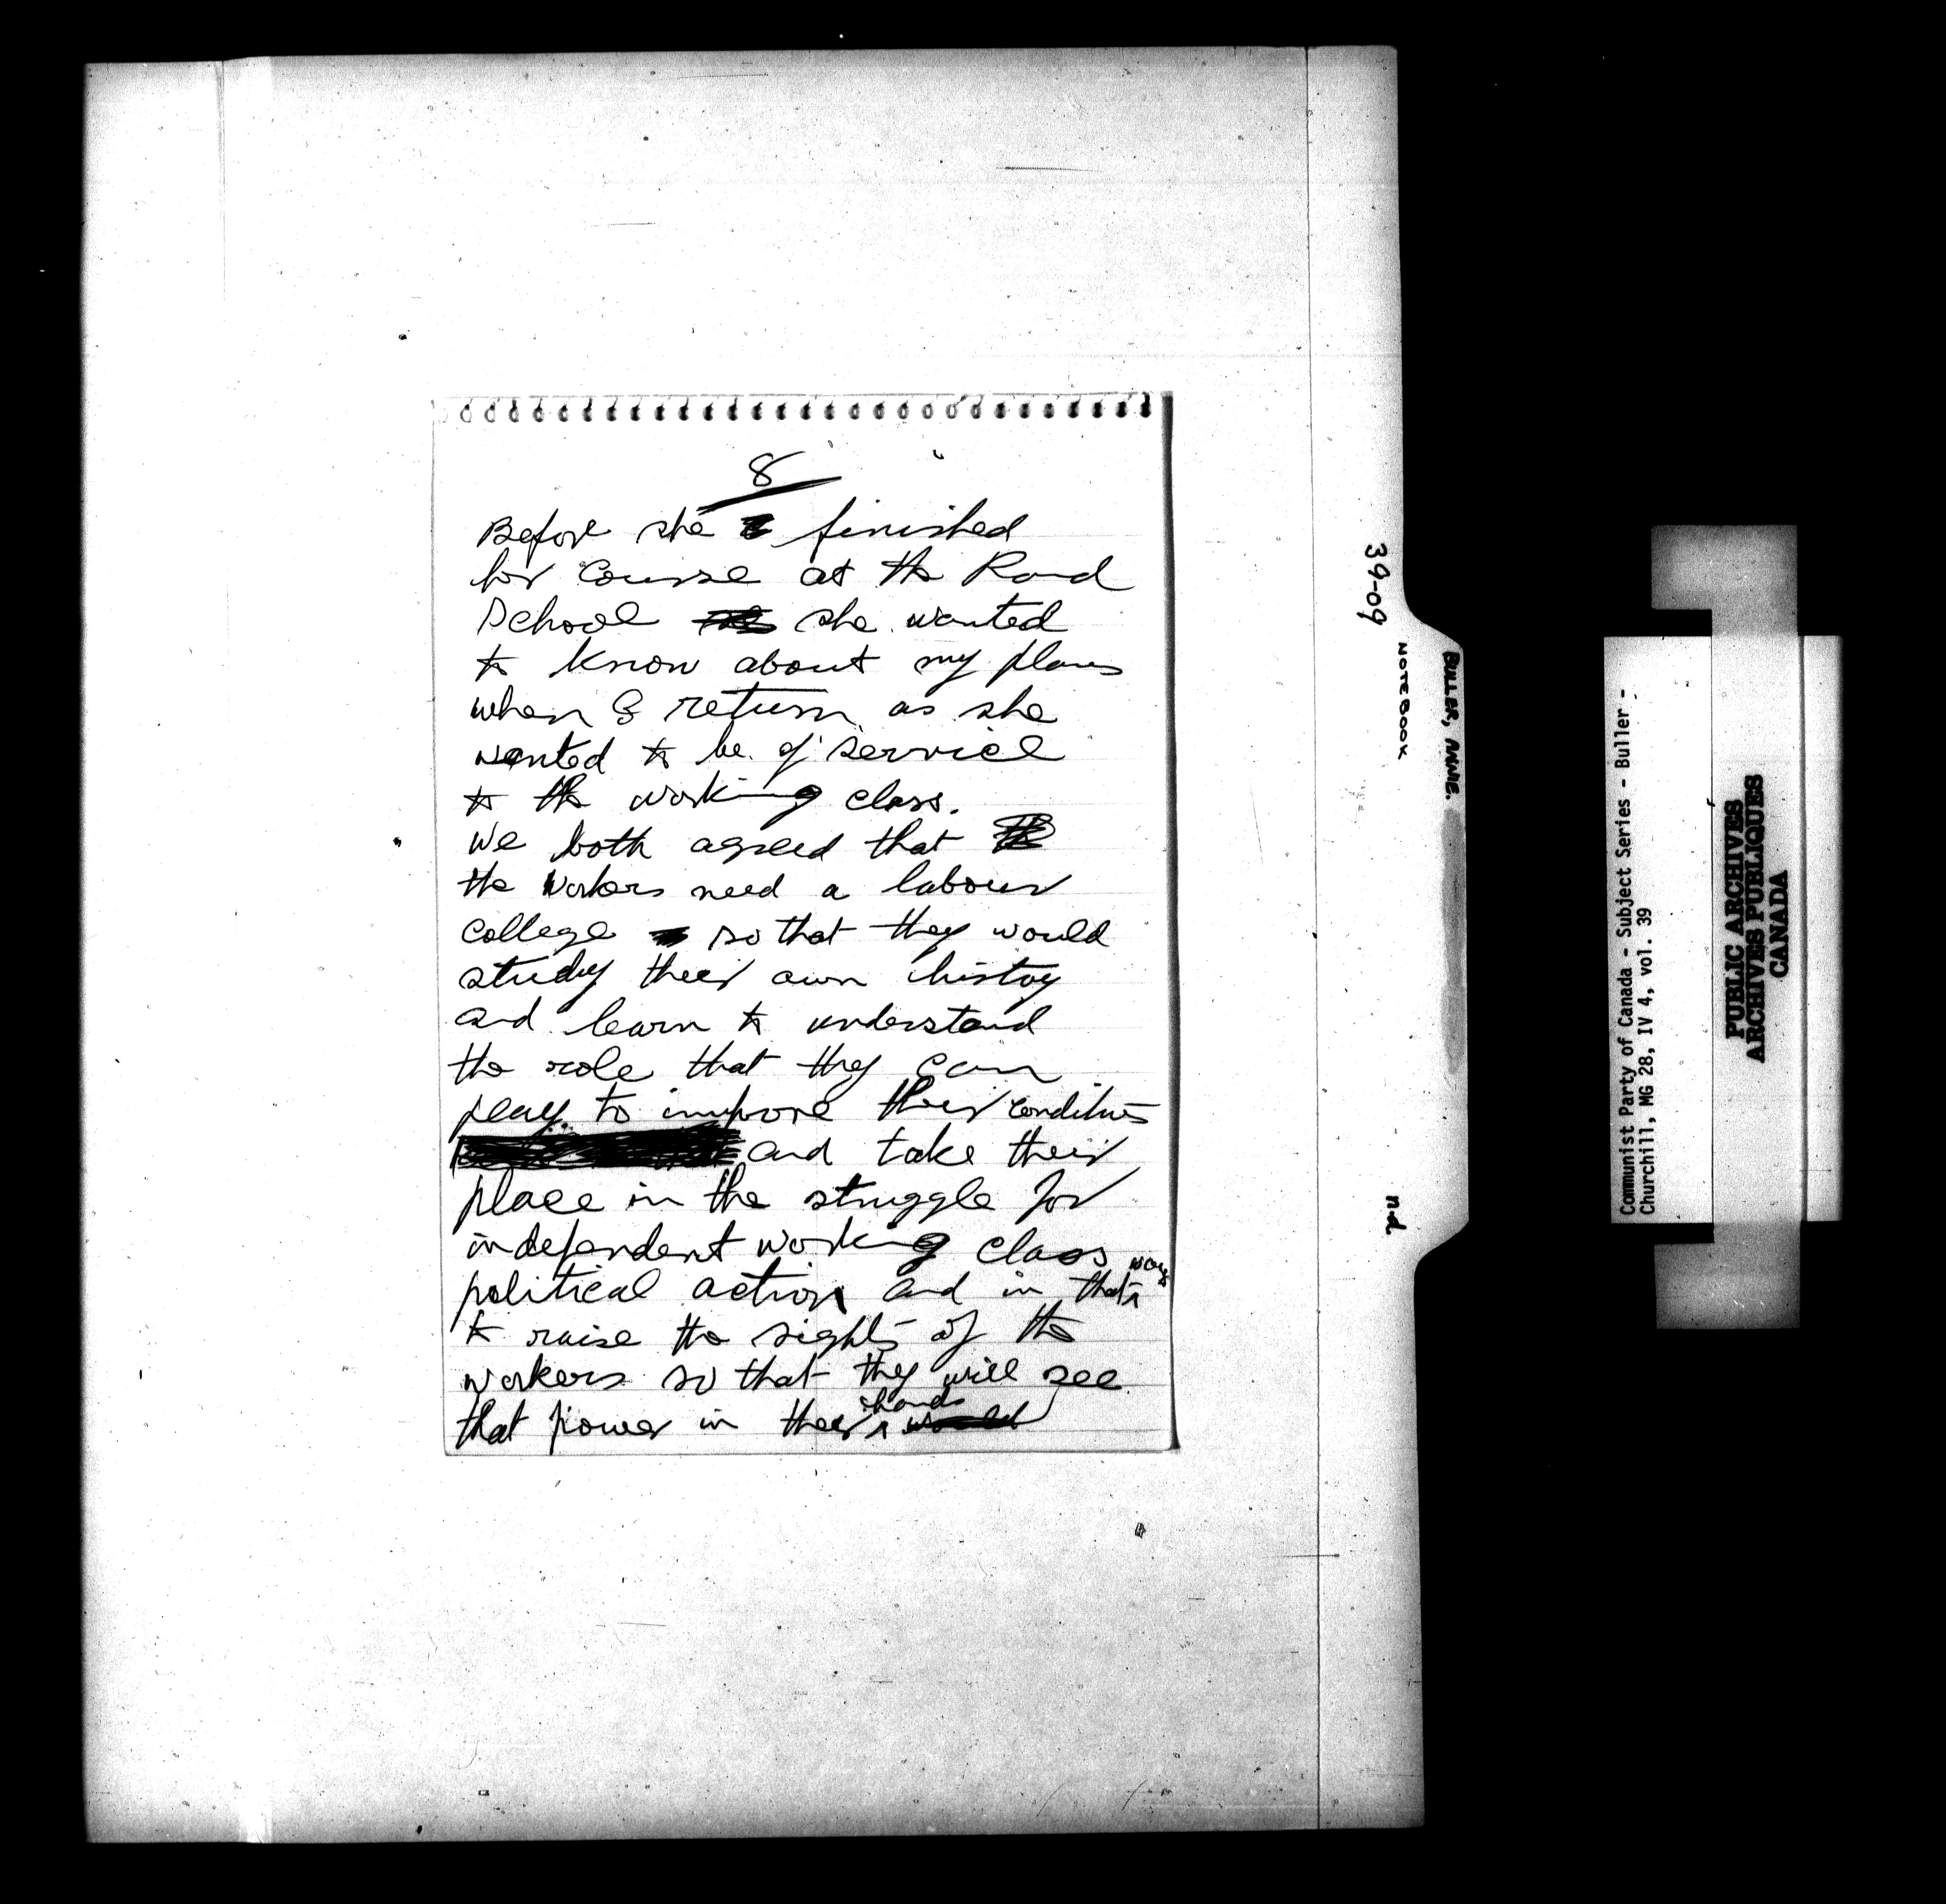 8
Before she finished
her course at the Rand
School she wanted
to know about my plans
when I return as she
wanted to be of service
to the working class.
We both agreed that
the workers need a labour
college so that they would
study their own history
and learn to understand
the role that they can
play to improve their conditions
and take their
place in the struggle for
independent working class
political action and in that way
to raise the sights of the
workers so that they will see
that power in their hands would
39-09
NOTEBOOK
n.d.
BULLER, ANNIE.
Communist Party of Canada - Subject Series - Buller -
Churchill, MG 28, IV 4, vol. 39
PUBLIC ARCHIVES
ARCHIVES PUBLIQUES
CANADA